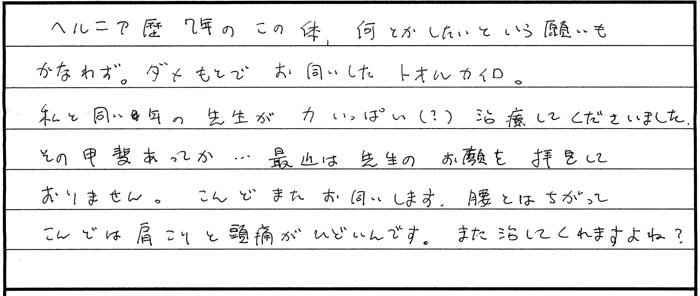 ヘルニア歴 7年の この 体, 何とかしたいという願いも
かなわず。ダメもとで お伺いした トオルカイロ。
私と同い年の 先生が 力いっぱい(?) 治療してくださいました.
その 甲斐あってか … 最近は 先生の お顔を 拝見して
おりません。 こんど また お伺いします. 腰とは ちがって
こんどは 肩こりと 頭痛が ひどいんです。 また 治してくれますよね?